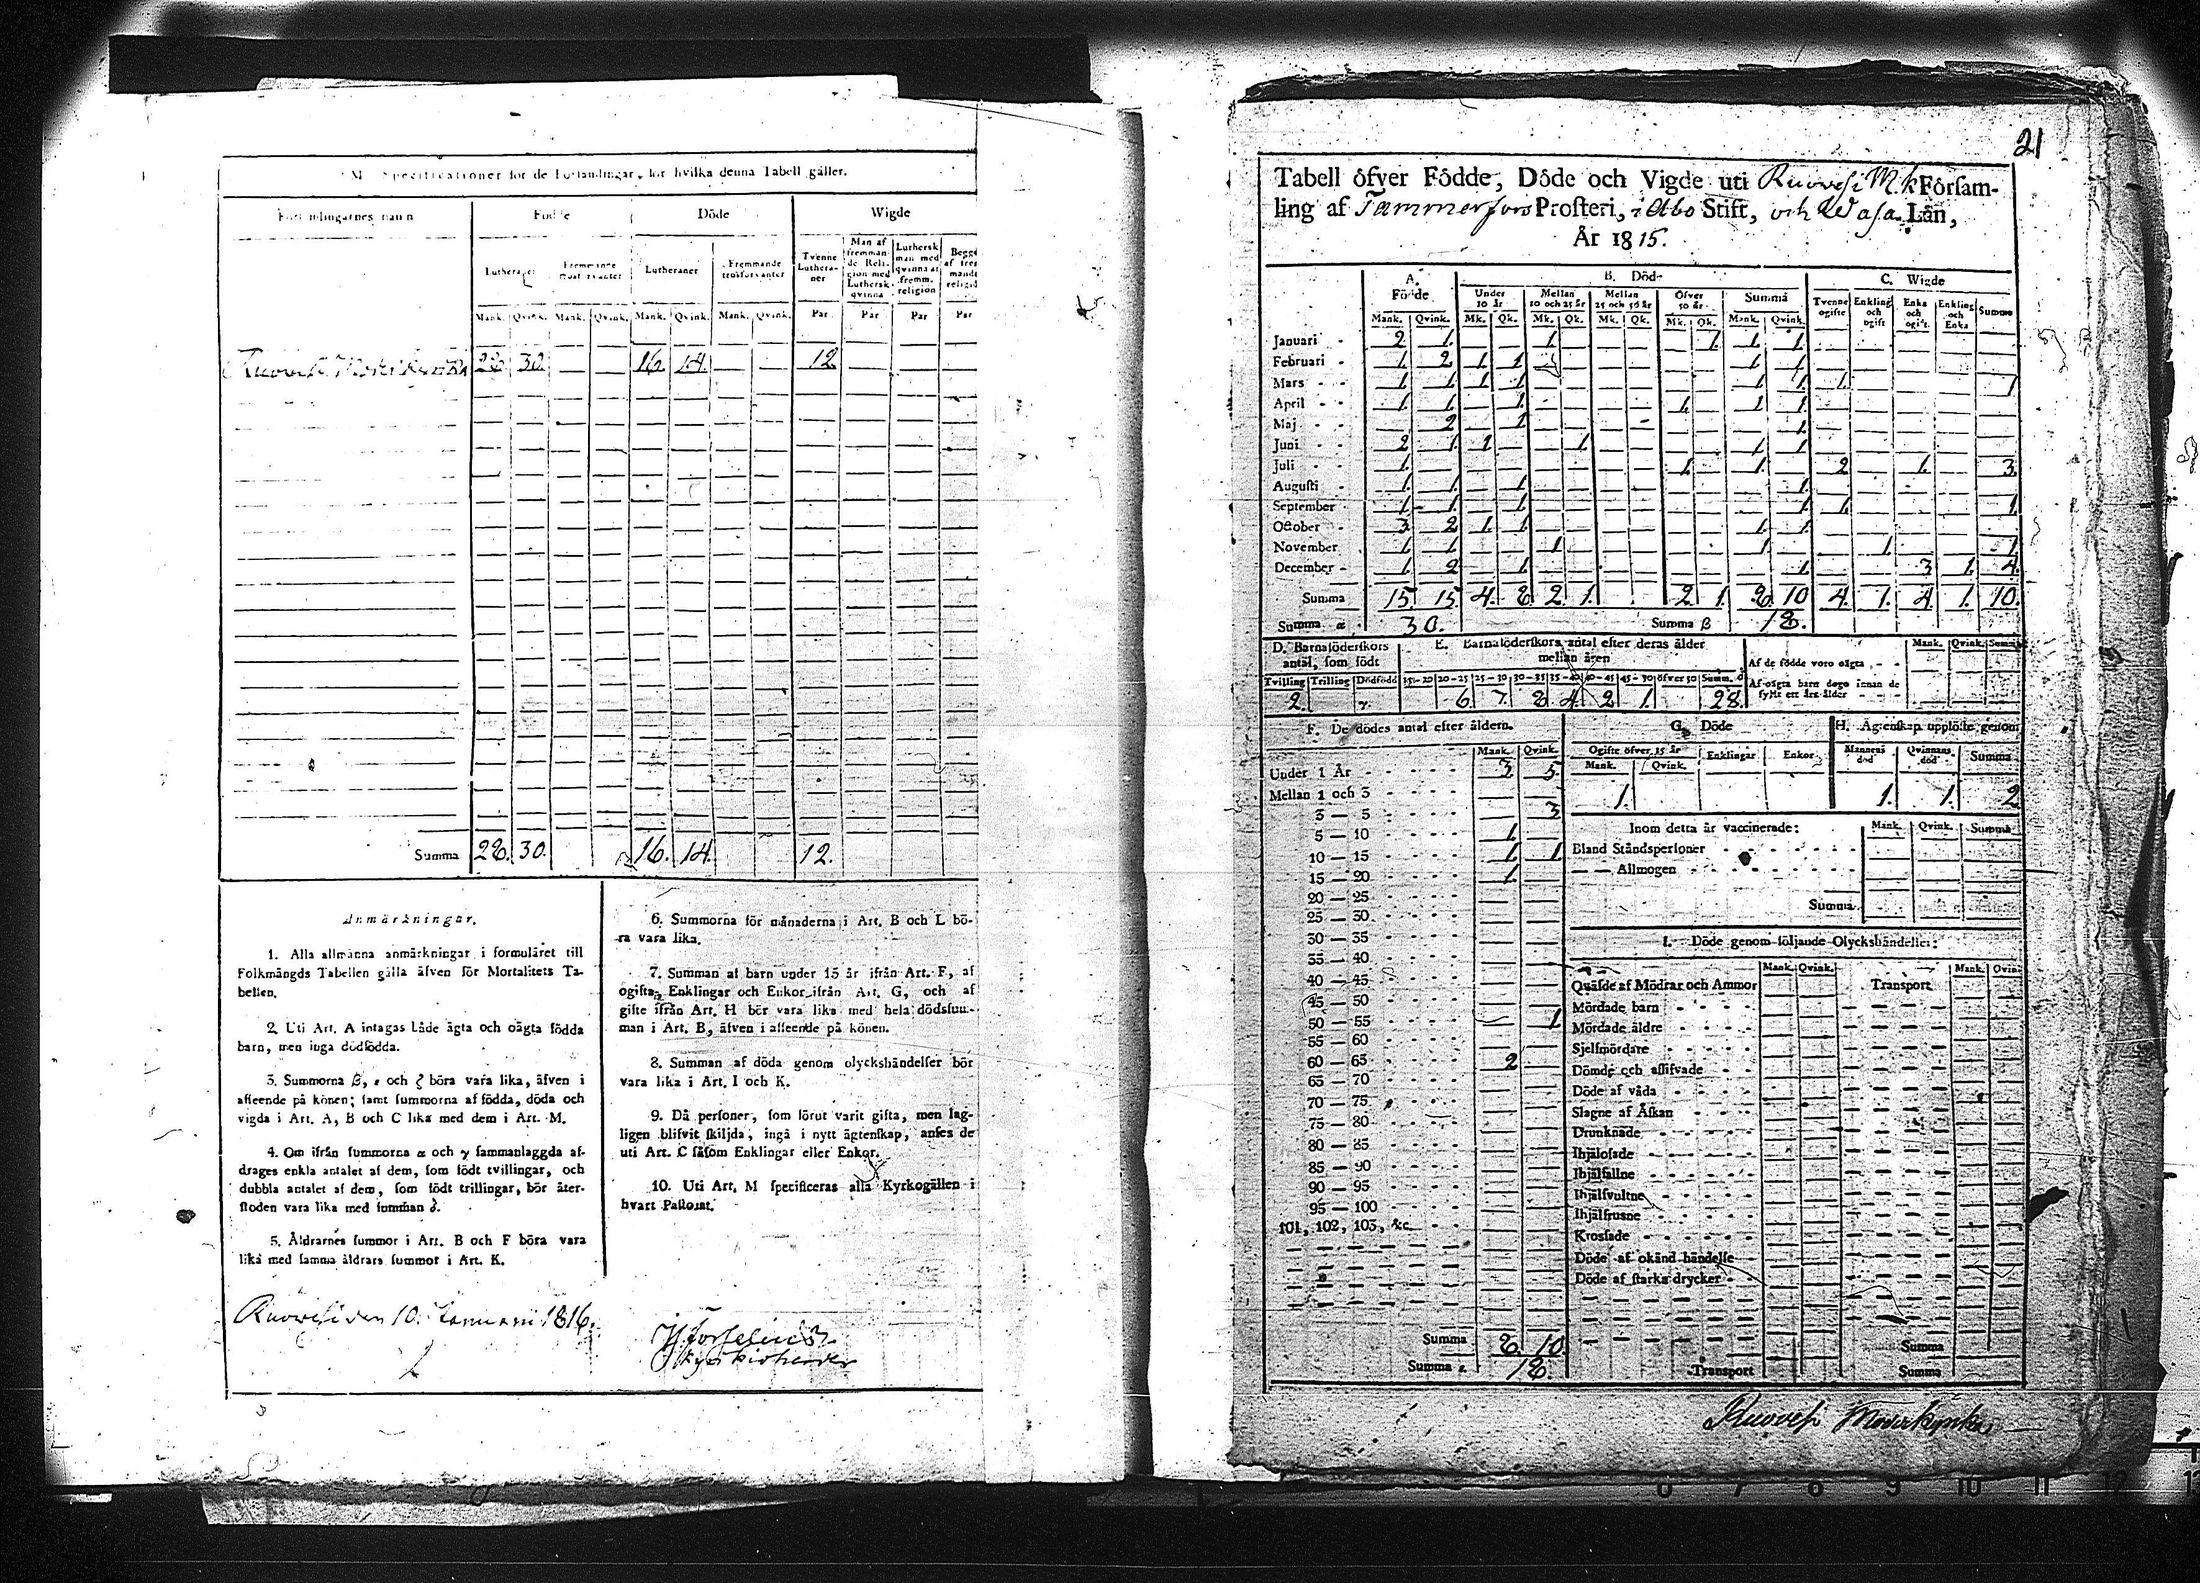 M. Specificationer för de Församlingar, för hvilka denna Tabell gäller.
Församlingarnes namn Födde Döde Wigde
Lutheraner Fremmande trosförvanter Lutheraner Fremmande trosförvanter Tvenne Lutheraner Man af fremmande Religion med Luthersk qvinna Luthersk man med qvinna af fremm. religion
Mank. Qvink. Mank. Qvink. Mank. Qvink. Mank. Qvink. Par Par Par Par
28 30. 16 14. 12.
Summa 28. 30. 16. 14. 12.
Anmärkningar.
1. Alla allmänna anmärkningar i formuläret till
Folkmängds Tabellen gälla äfven för Mortalitets Ta-
bellen.
2. Uti Art. A intagas både ägta och oägta födda
barn, men inga dödfödda.
3. Summorna β, ε och ζ böra vara lika, äfven i
afseende på könen; samt summorna af födda, döda och
vigda i Art. A, B och C lika med dem i Art. M.
4. Om ifrån summorna α och γ sammanlaggda af-
drages enkla antalet af dem, som födt tvillingar, och
dubbla antalet af dem, som födt trillingar, bör åter-
stoden vara lika med summan δ.
5. Åldrarnes summor i Art. B och F böra vara
lika med samma åldrars summor i Art. K.
6. Summorna för månaderna i Art. B och L bö-
ra vara lika.
7. Summan af barn under 15 år ifrån Art. F, af
ogifta, Enklingar och Enkor ifrån Art. G, och af
gifte ifrån Art. H bör vara lika med hela dödssum-
man i Art. B, äfven i afseende på könen.
8. Summan af döda genom olyckshändelser bör
vara lika i Art. I och K.
9. Då personer, som förut varit gifta, men lag-
ligen blifvit skiljda, ingå i nytt ägtenskap, anses de
uti Art. C såsom Enklingar eller Enkor.
10. Uti Art. M specificeras alla Kyrkogällen i
hvart Pastorat.
Ruovesi den 10. Januari 1816.
Kyrkioherde
21
Tabell öfver Födde, Döde och Vigde uti Ruovesi Mk Försam-
ling af Tammerfors Prosteri, i Åbo Stift, och Wasa Län,
År 1815.
A. Födde B. Död- C. Wigde
Under 10 år Mellan 10 och 25 år Mellan 25 och 50 år Öfver 50 år Summa Tvenne ogifte Enkling och ogift Enka och ogift Enkling och Enka Summa
Mank. Qvink. Mk. Qk. Mk. Qk. Mk. Qk. Mk. Qk. Mank. Qvink.
Januari 2 1. 1. 1. 1. 1.
Februari 1. 2 1. 1. 1. 1.
Mars 1. 1. 1. 1. 1. 1. 1. 1
April 1. 1. 1. 1. 1. 1.
Maj 2 1. 1.
Juni 2 1. 1. 1. 1. 1.
Juli 1. 1. 1. 2 1. 3.
Augusti 1. 1. 1. 1.
September 1. 1. 1. 1. 1. 1.
October 3. 2 1. 1. 1. 1.
November 1. 1. 1. 1. 1. 1
December 1. 2 1. 1. 3 1. 4.
Summa 15. 15. 4. 8 2. 1. 2. 1. 8 10 4. 1. 4. 1. 10.
Summa α 30. Summa β 18.
D. Barnaföderskors antal, som födt E. Barnaföderskors antal efter deras ålder mellan åren
Tvilling Trilling Dödfödd 15-20 20-25 25-30 30-35 35-40 40-45 45-50 öfver 50 Summ. δ
2. γ. 6. 7. 8 4. 2 1. 28.
Mank. Qvink. Summa
Af de födde voro oägta
Af oägta barn dogo innan de fyllt ett års ålder
F. De dödes antal efter åldern.
Mank. Qvink.
Under 1 År 3 5.
Mellan 1 och 3
3 — 5 3
5 — 10 1.
10 — 15 1. 1
15 — 20 1.
20 — 25
25 — 30
30 — 35
35 — 40
40 — 45
45 — 50
50 — 55 1
55 — 60
60 — 65 2
65 — 70
70 — 75
75 — 80
80 — 85
85 — 90
90 — 95
95 — 100
101, 102, 103, &c.
Summa 8. 10
Summa ε 18.
G. Döde H. Ägtenskap upplöste genom
Ogifte öfver 15 år Enklingar Enkor Mannens död Qvinnans död Summa
Mank. Qvink.
1. 1. 1. 2
Inom detta år vaccinerade: Mank. Qvink. Summa
Bland Ståndspersoner
— — Allmogen
Summa
I. Döde genom följande Olyckshändelser:
Mank. Qvink. Mank. Qvink.
Quäfde af Mödrar och Ammor Transport
Mördade barn
Mördade äldre
Sjelfmördare
Dömde och afstrafvade
Döde af våda
Slagne af Åskan
Drunknade
Ihjälosade
Ihjälfallne
Ihjälsvultne
Ihjälfrusne
Krossade
Döde af okänd händelse
Döde af starka drycker
Summa
Transport Summa
Ruovesi Moderkyrka